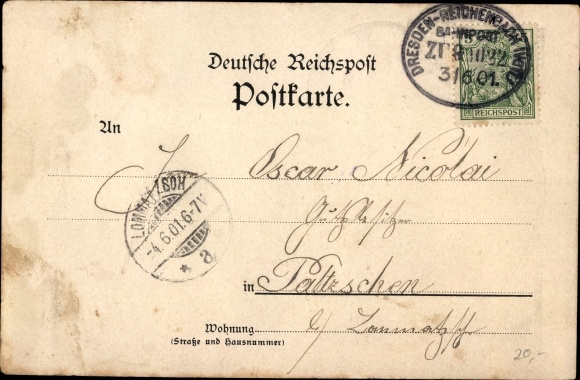 DRESDEN-REICHENBACH (VOGTL)
BAHNPOST
ZUG
3/6.01.
REICHSPOST
Deutsche Reichspost
Postkarte.
An
Oscar Nicolai
LOMMATZSCH
-4.6.01.6-7V
* a
Gutsbesitzer
in Paltzschen
Wohnung b/ Lommatzsch
(Straße und Hausnummer)
20,-